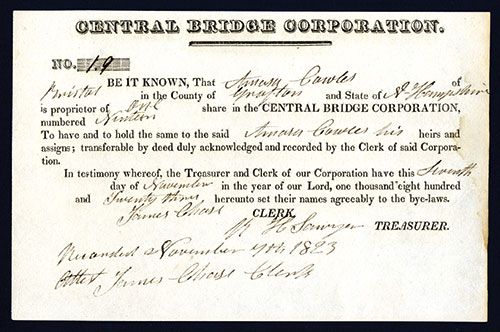 CENTRAL BRIDGE CORPORATION.
NO. 19
BE IT KNOWN, That Amasa Cowles of
Bristol in the County of Grafton and State of N Hampshire
is proprietor of one share in the CENTRAL BRIDGE CORPORATION,
numbered Ninteen
To have and to hold the same to the said Amasa Cowles his heirs and
assigns; transferable by deed duly acknowledged and recorded by the Clerk of said Corpora-
tion.
In testimony whereof, the Treasurer and Clerk of our Corporation have this Seventh
day of November in the year of our Lord, one thousand eight hundred
and Twenty three hereunto set their names agreeably to the bye-laws.
James Chase CLERK
R H Sawyer TREASURER.
Recorded November 7th 1823
Attest James Chase Clerk